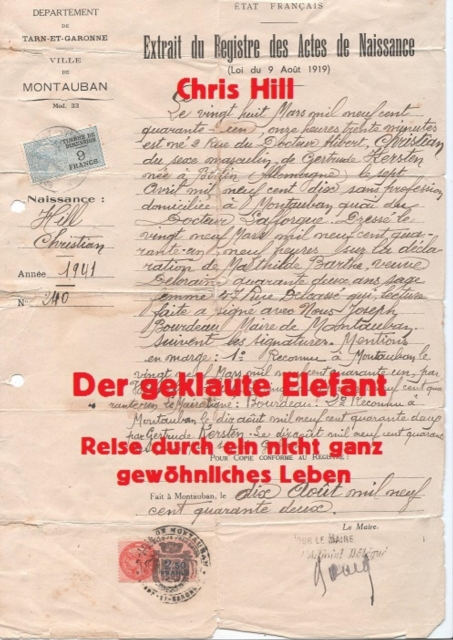 DÉPARTEMENT
DE
TARN-ET-GARONNE
VILLE
DE
MONTAUBAN
Mod. 33
ÉTAT FRANÇAIS
Extrait du Registre des Actes de Naissance
(Loi du 9 Août 1919)
Chris Hill
Le vingt huit Mars mil neuf cent
quarante-un, onze heures trente minutes
est né 2 Rue du Docteur Alibert, Christian
du sexe masculin, de Gertrude Kersten
née à Berlin (Allemagne) le sept
Avril mil neuf cent dix sans profession
domiciliée à Montauban quai du
Docteur Lafforgue. Dressé le
vingt neuf Mars mil neuf cent qua-
rante-un, neuf heures sur la décla-
ration de Mathilde Barthe, veuve
quarante deux ans sage
femme 4 Rue qui, lecture
faite a signé avec Nous Joseph
Bourdeau Maire de Montauban
Suivent les signatures. Mentions
en marge: 1° Reconnu à Montauban le
vingt neuf Mars mil neuf cent quarante un, par
2 FRANCS
Naissance :
Hill
Christian
Année 1941
N° 240
Der geklaute Elefant
Bourdeau. 2° Reconnu à
Montauban le dix août mil neuf cent quarante deux
par Gertrude Kersten. Le dix août mil neuf cent quarante
Reise durch ein nicht ganz
gewöhnliches Leben
POUR COPIE CONFORME AU REGISTRE :
Fait à Montauban, le dix Août mil neuf
cent quarante deux.
Le Maire.
POUR LE MAIRE